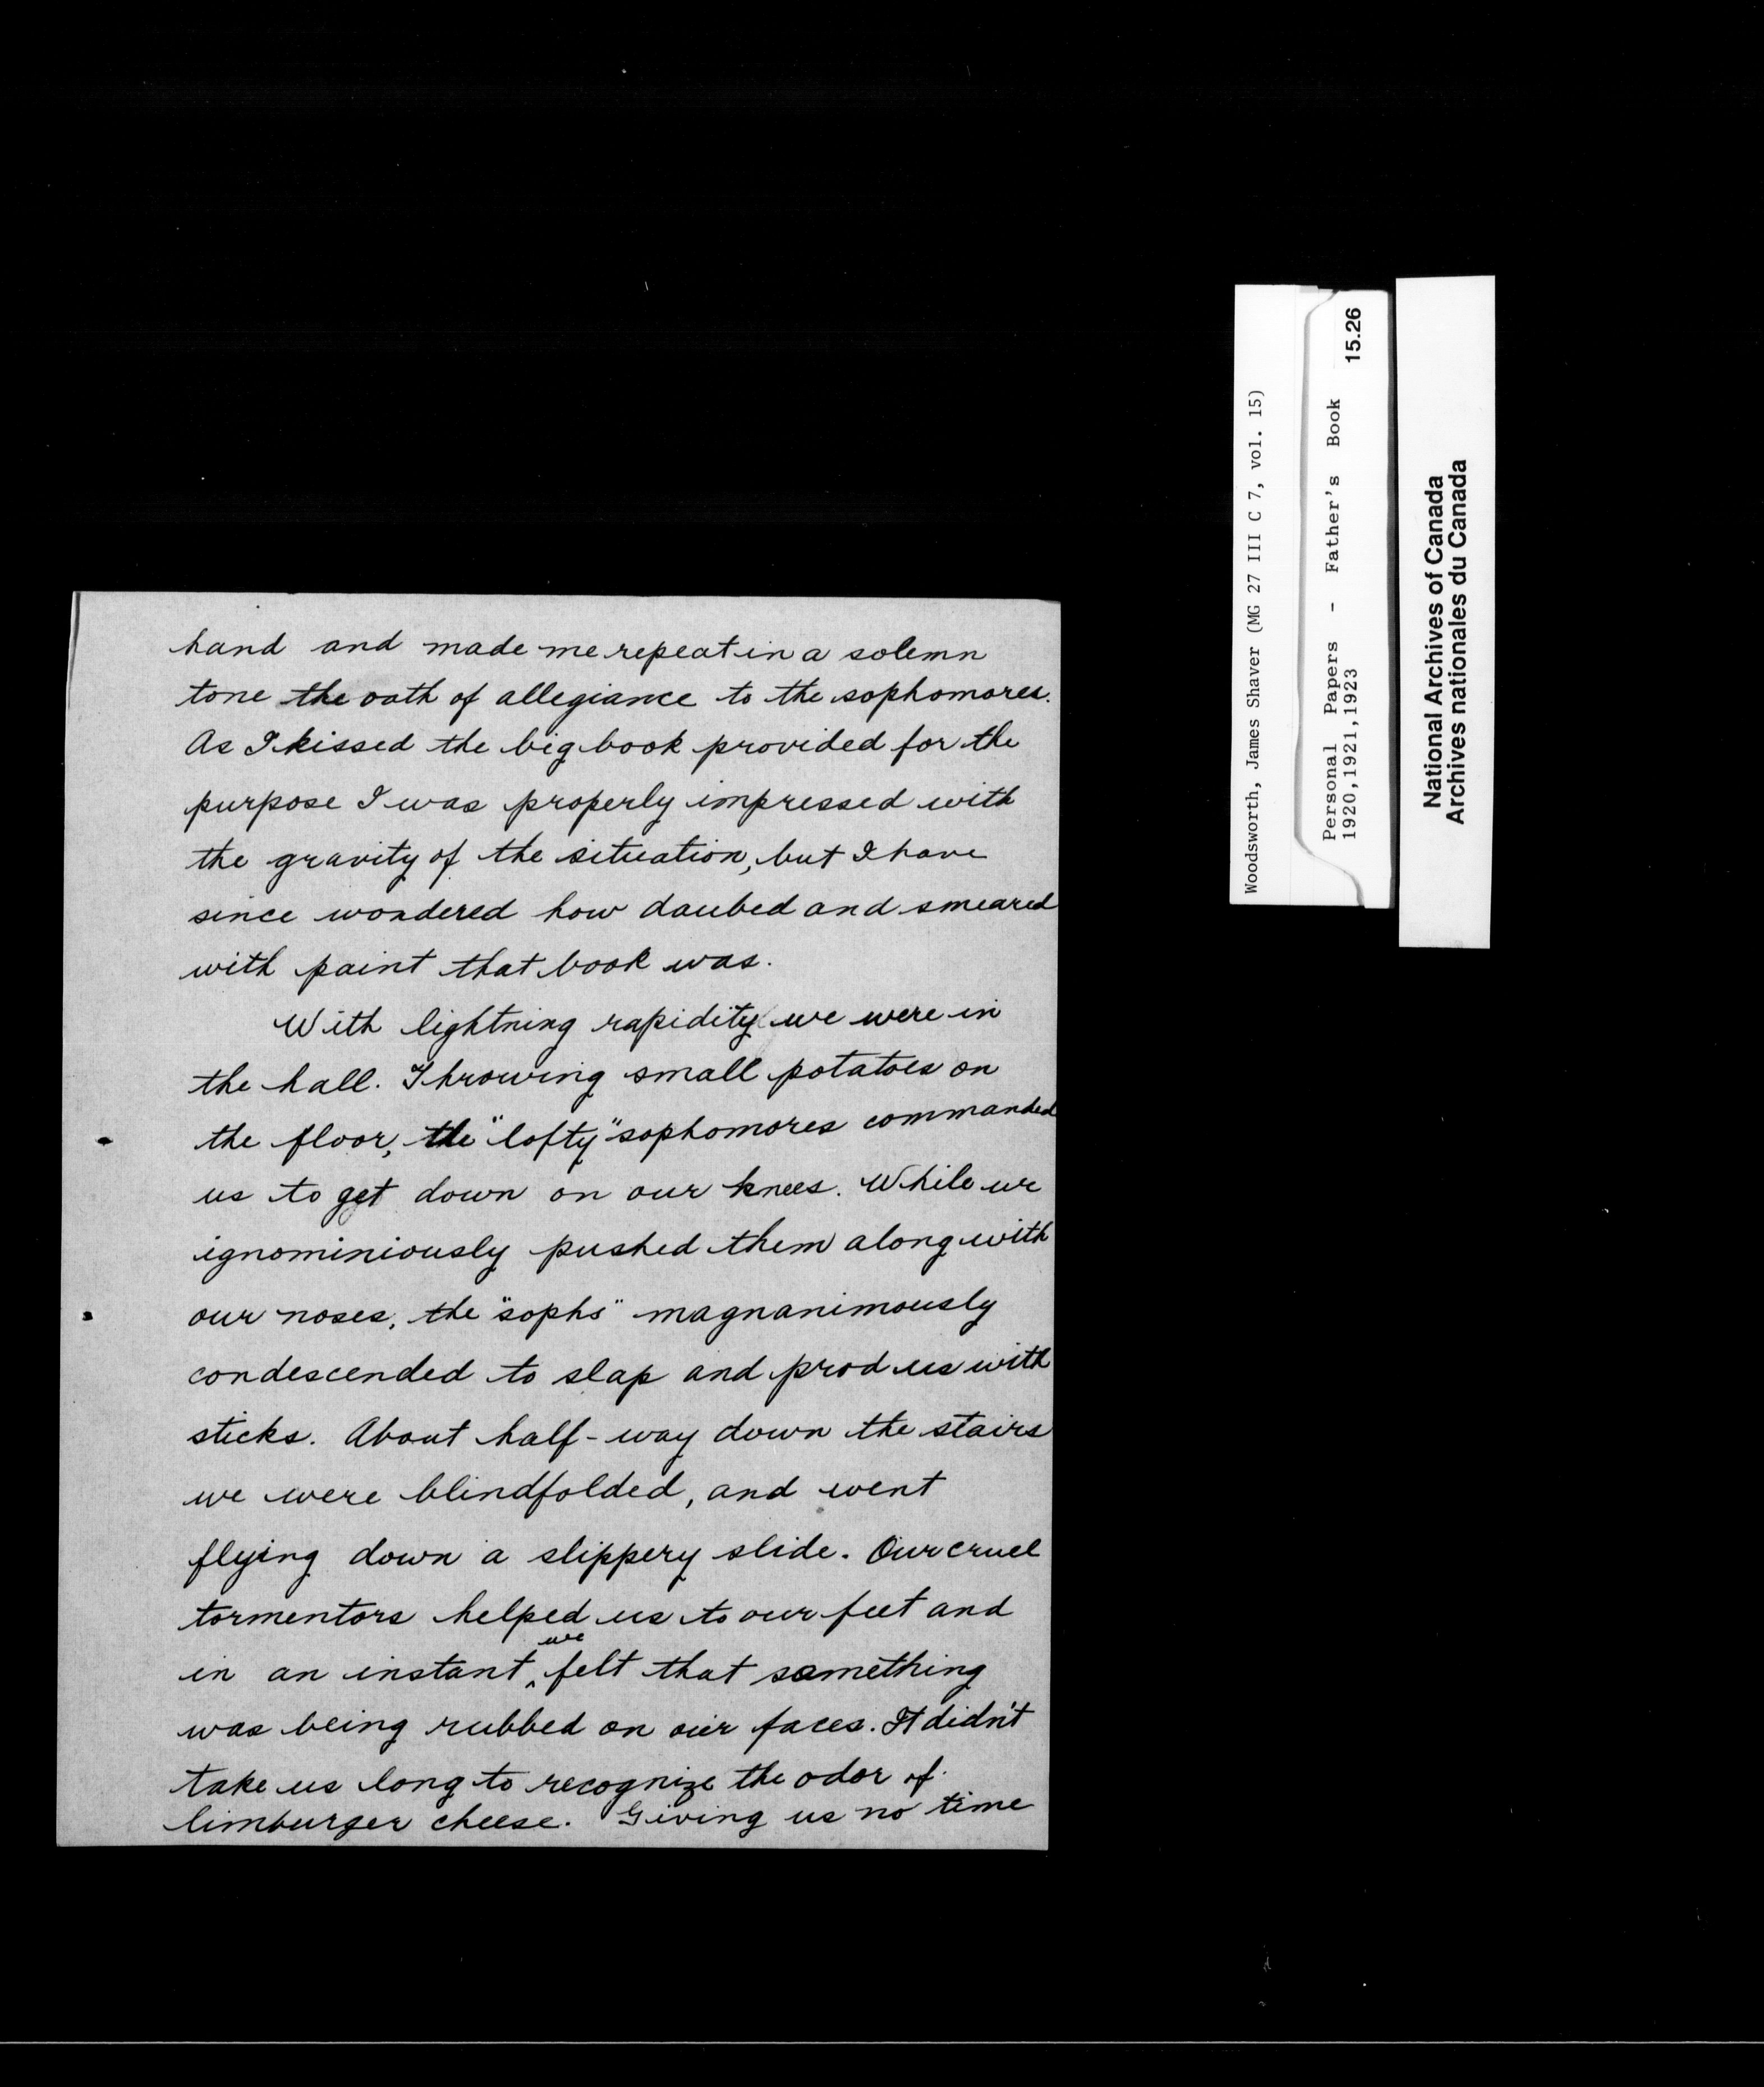 hand and made me repeat in a solemn
tone the oath of allegiance to the sophomores.
As I kissed the big book provided for the
purpose I was properly impressed with
the gravity of the situation, but I have
since wondered how daubed and smeared
with paint that book was.
With lightning rapidity we were in
the hall. Throwing small potatoes on
the floor, the "lofty" sophomores commanded
us to get down on our knees. While we
ignominiously pushed them along with
our noses, the "sophs" magnanimously
condescended to slap and prod us with
sticks. About half-way down the stairs
we were blindfolded, and went
flying down a slippery slide. Our cruel
tormentors helped us to our feet and
in an instant we felt that something
was being rubbed on our faces. It didn't
take us long to recognize the odor of
limburger cheese. Giving us no time
Woodsworth, James Shaver (MG 27 III C 7, vol. 15)
Personal Papers - Father's Book 15.26
1920,1921,1923
National Archives of Canada
Archives nationales du Canada